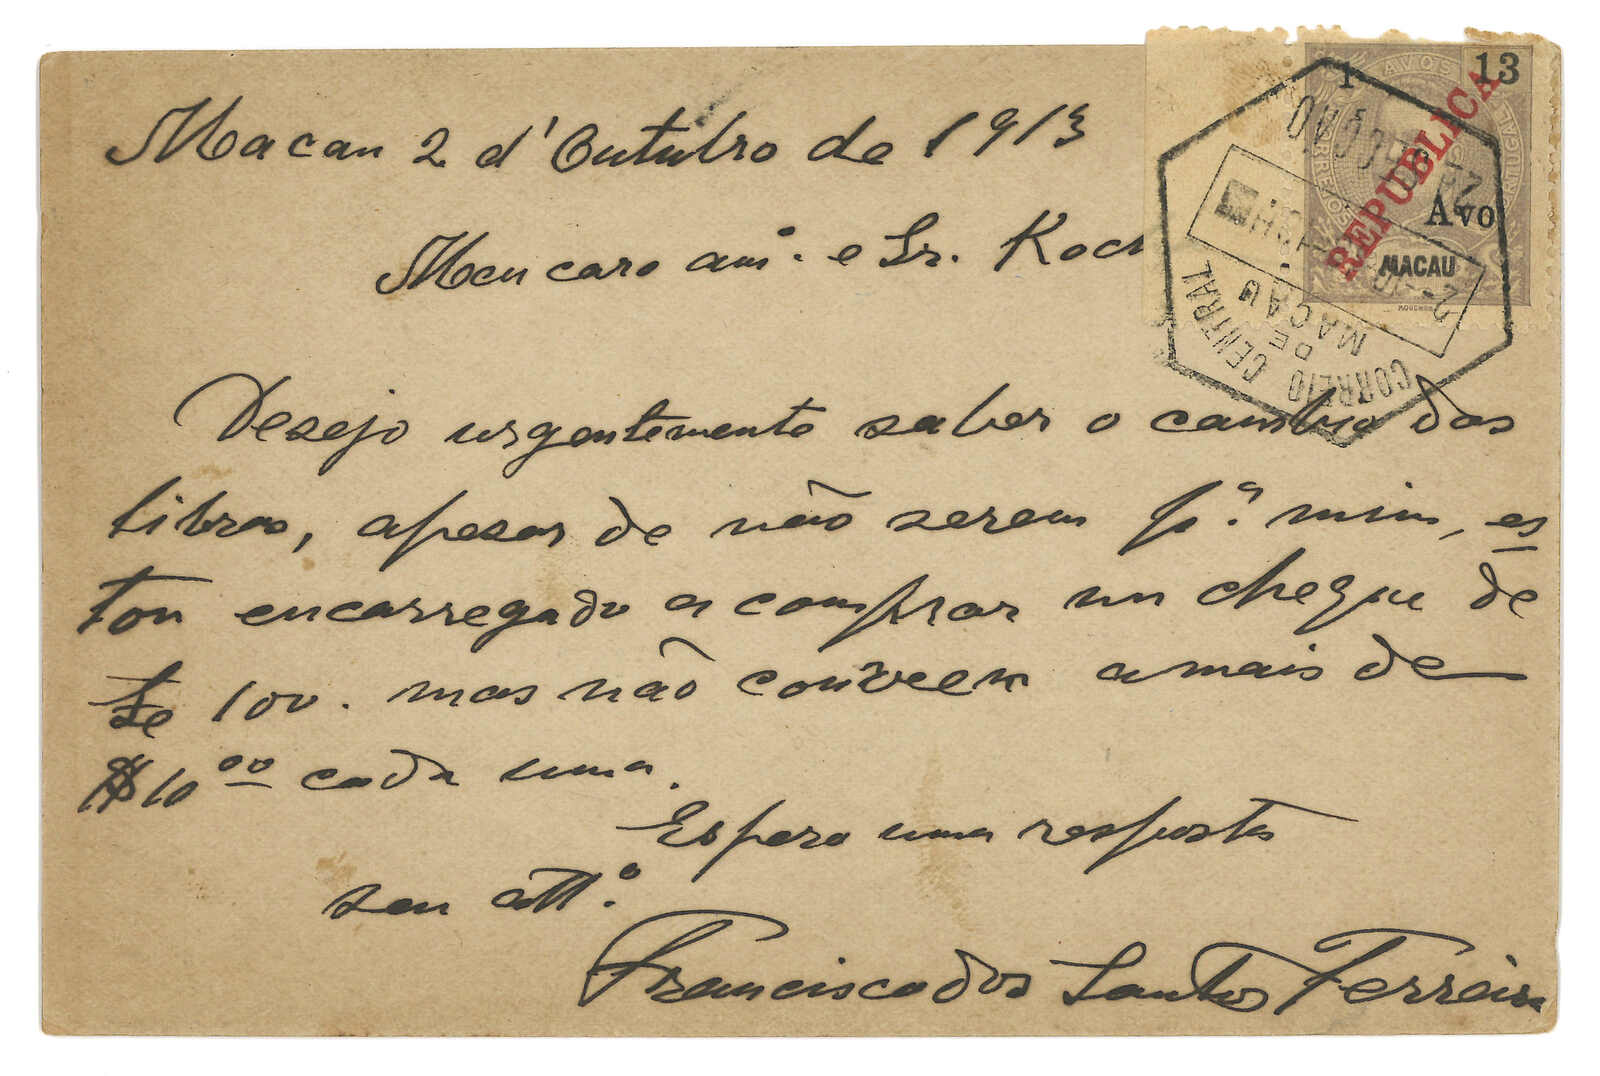 Macau 2 d'Outubro de 1913
Meu caro am.º e Sr. Koch
Desejo urgentemente saber o cambio das
libras, apesar de não serem p.ª mim, es
tou encarregado a comprar un cheque de
£e 100. mas não convem a mais de
$10.00 cada uma.
Espero uma resposta
seu att.º
Francisco dos Santos Ferreira
AVOS
1
13
REPUBLICA
Avo
MACAU
CORREIOS
MOUCHON
2ª SECÇÃO
2-10-
CORREIO CENTRAL
DE
MACAU